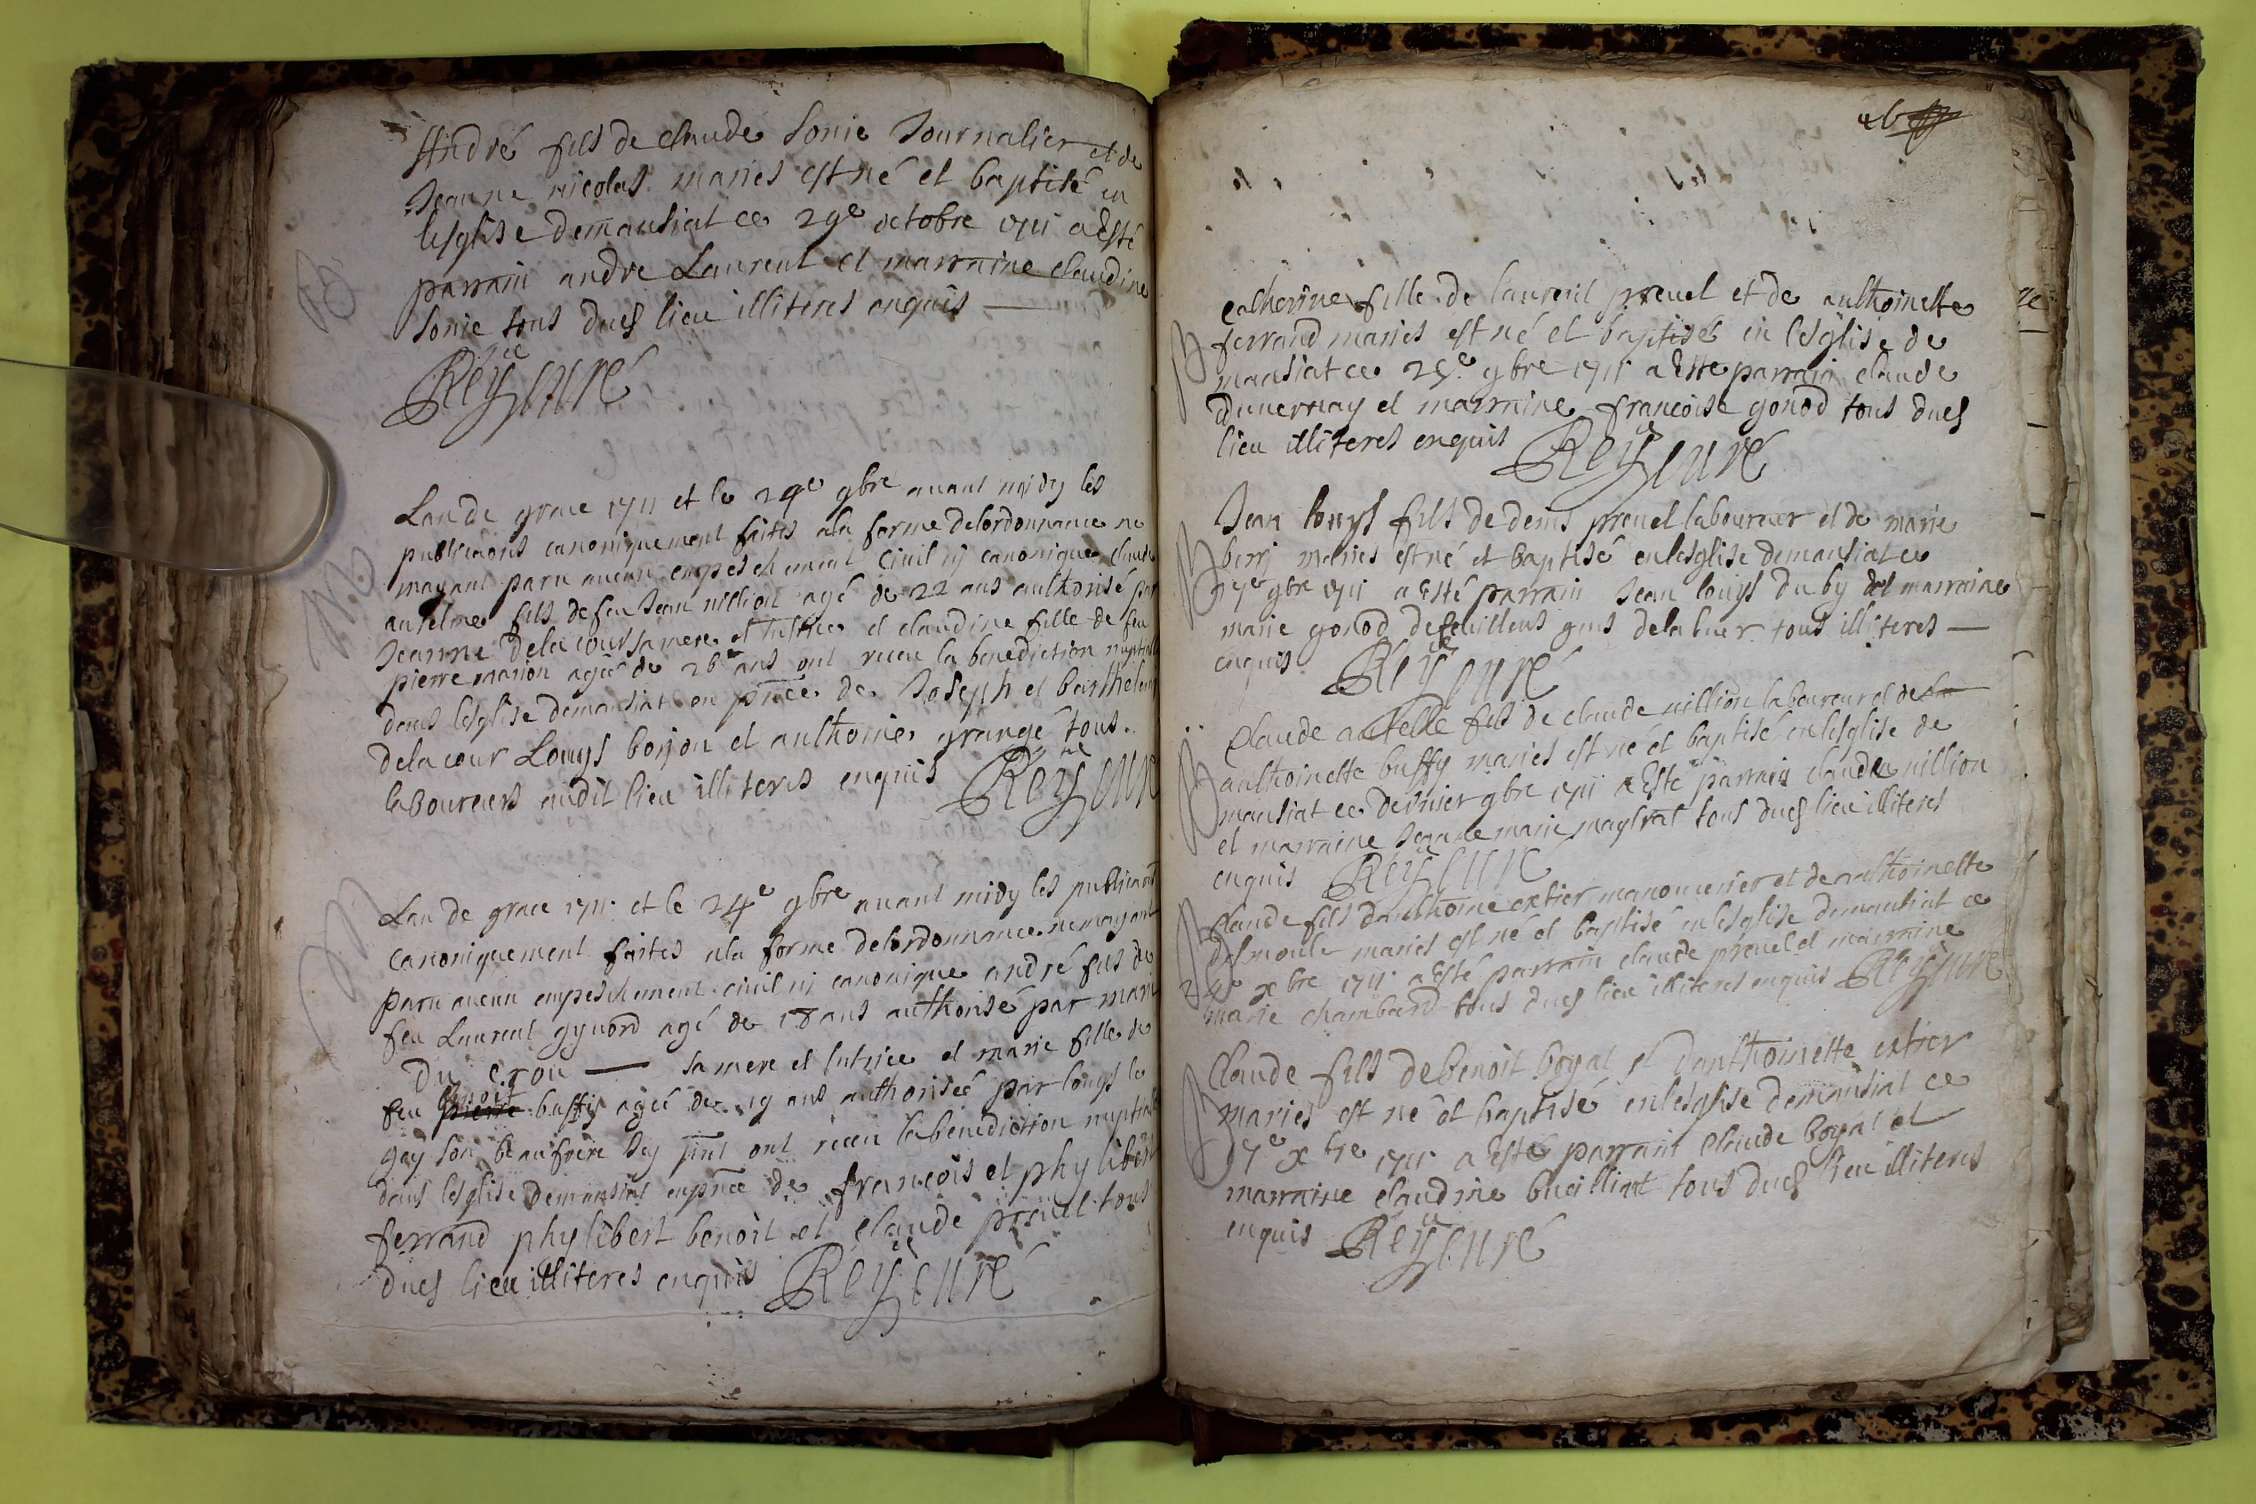 B
André fils de claude Sonie Journalier et de
Jeanne nicolas maries est né et baptisé en
lesglise demansiat ce 29e octobre 1711 a Esté
parrain andre Laurent et marraine claudine
Sonie tous dud lieu illiteres enquis
Rey curé
M
Lan de grace 1711 et le 24e 9bre avant midy les
publicaons canoniquement faites ala forme delordonnance ne
mayant paru aucun empeschement civil nj canonique claude
anselme fils defeu Jean nillion agé de 22 ans authorisé par
Jeanne delacour samere et tutrice et claudine fille de feu
pierre marion agée de 26 ans ont receu la benediction nuptialle
dans lesglise demansiat en pnce de Joseph et barthelemy
delacour Louys borjon et anthoine grange tous
laboureurs audit lieu illiteres enquis Rey curé
M
Lan de grace 1711 et le 24e 9bre avant midy les publicaons
canoniquement faites ala forme delordonnance nemayant
paru aucun empeschement civil nj canonique andré fils de
feu Laurent gynord agé de 18 ans authorisé par marie
Du crou samere et tutrice et marie fille de
benoit
feu pierre buffy agée de 19 ans authorisée par louys le
gay son beaufrere Icy pnt ont receu la benediction nuptialle
dans lesglise demansiat enpnce de francois et phylibert
ferrand phylibert benoit et claude prevel tous
dud lieu illiteres enquis Rey curé
B
catherine fille de laurent prevel et de anthoinette
ferrand maries est né et baptisée en lesglise de
mansiat ce 25e 9bre 1711 a Este parrain claude
Duvernay et marraine francoise gonod tous dud
lieu illiteres enquis Rey curé
B
Jean louys fils de denis prevel laboureur et de marie
berj maries est né et baptisé enlesglise demansiat ce
27e 9bre 1711 a Esté parrain Jean louys duby et marraine
marie gonod defeuillens gens delaluer tous illiteres
enquis Rey curé
B
Claude fils de claude nillion laboureur et de
anthoinette buffy maries est né et baptisé enlesglise de
mansiat ce dernier 9bre 1711 a Esté parrain claude nillion
et marraine Jeanne marie maytrat tous dud lieu illiteres
enquis Rey curé
B
Claude fils danthoine extier manouvrier et de anthoinette
desmoule maries est né et baptisé enlesglise demansiat ce
4e xbre 1711 a Esté parrain claude prevel et marraine
marie chambard tous dud lieu illiteres enquis Rey curé
B
Claude fils debenoit boyat et danthoinette extier
maries est né et baptisé enlesglise demansiat ce
17e xbre 1711 a Esté parrain claude boyat et
marraine claudine bueilliat tous dud lieu illiteres
enquis Rey curé